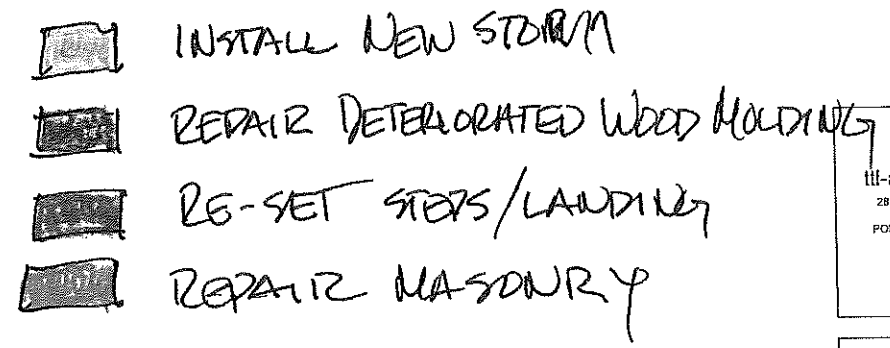 INSTALL NEW STORM
REPAIR DETERIORATED WOOD MOLDING
RE-SET STEPS/LANDING
REPAIR MASONRY